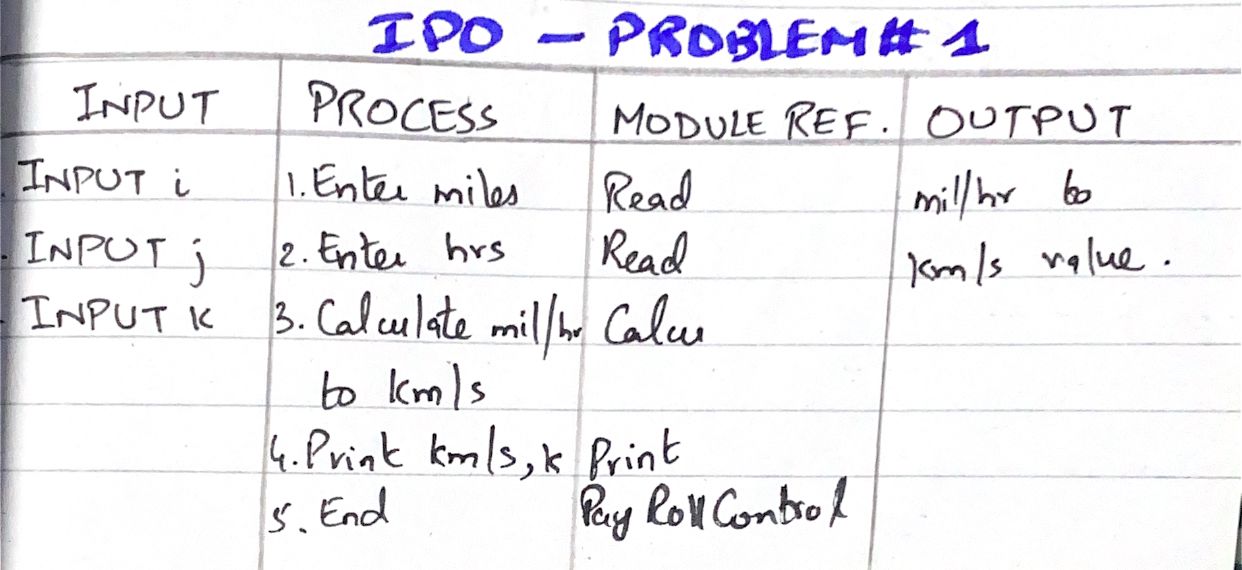 IPO - PROBLEM # 1
INPUT PROCESS MODULE REF. OUTPUT
INPUT i 1. Enter miles Read mil/hr to
INPUT j 2. Enter hrs Read km/s value.
INPUT K 3. Calculate mil/hr Calcu
to km/s
4. Print km/s, k Print
5. End Pay Roll Control